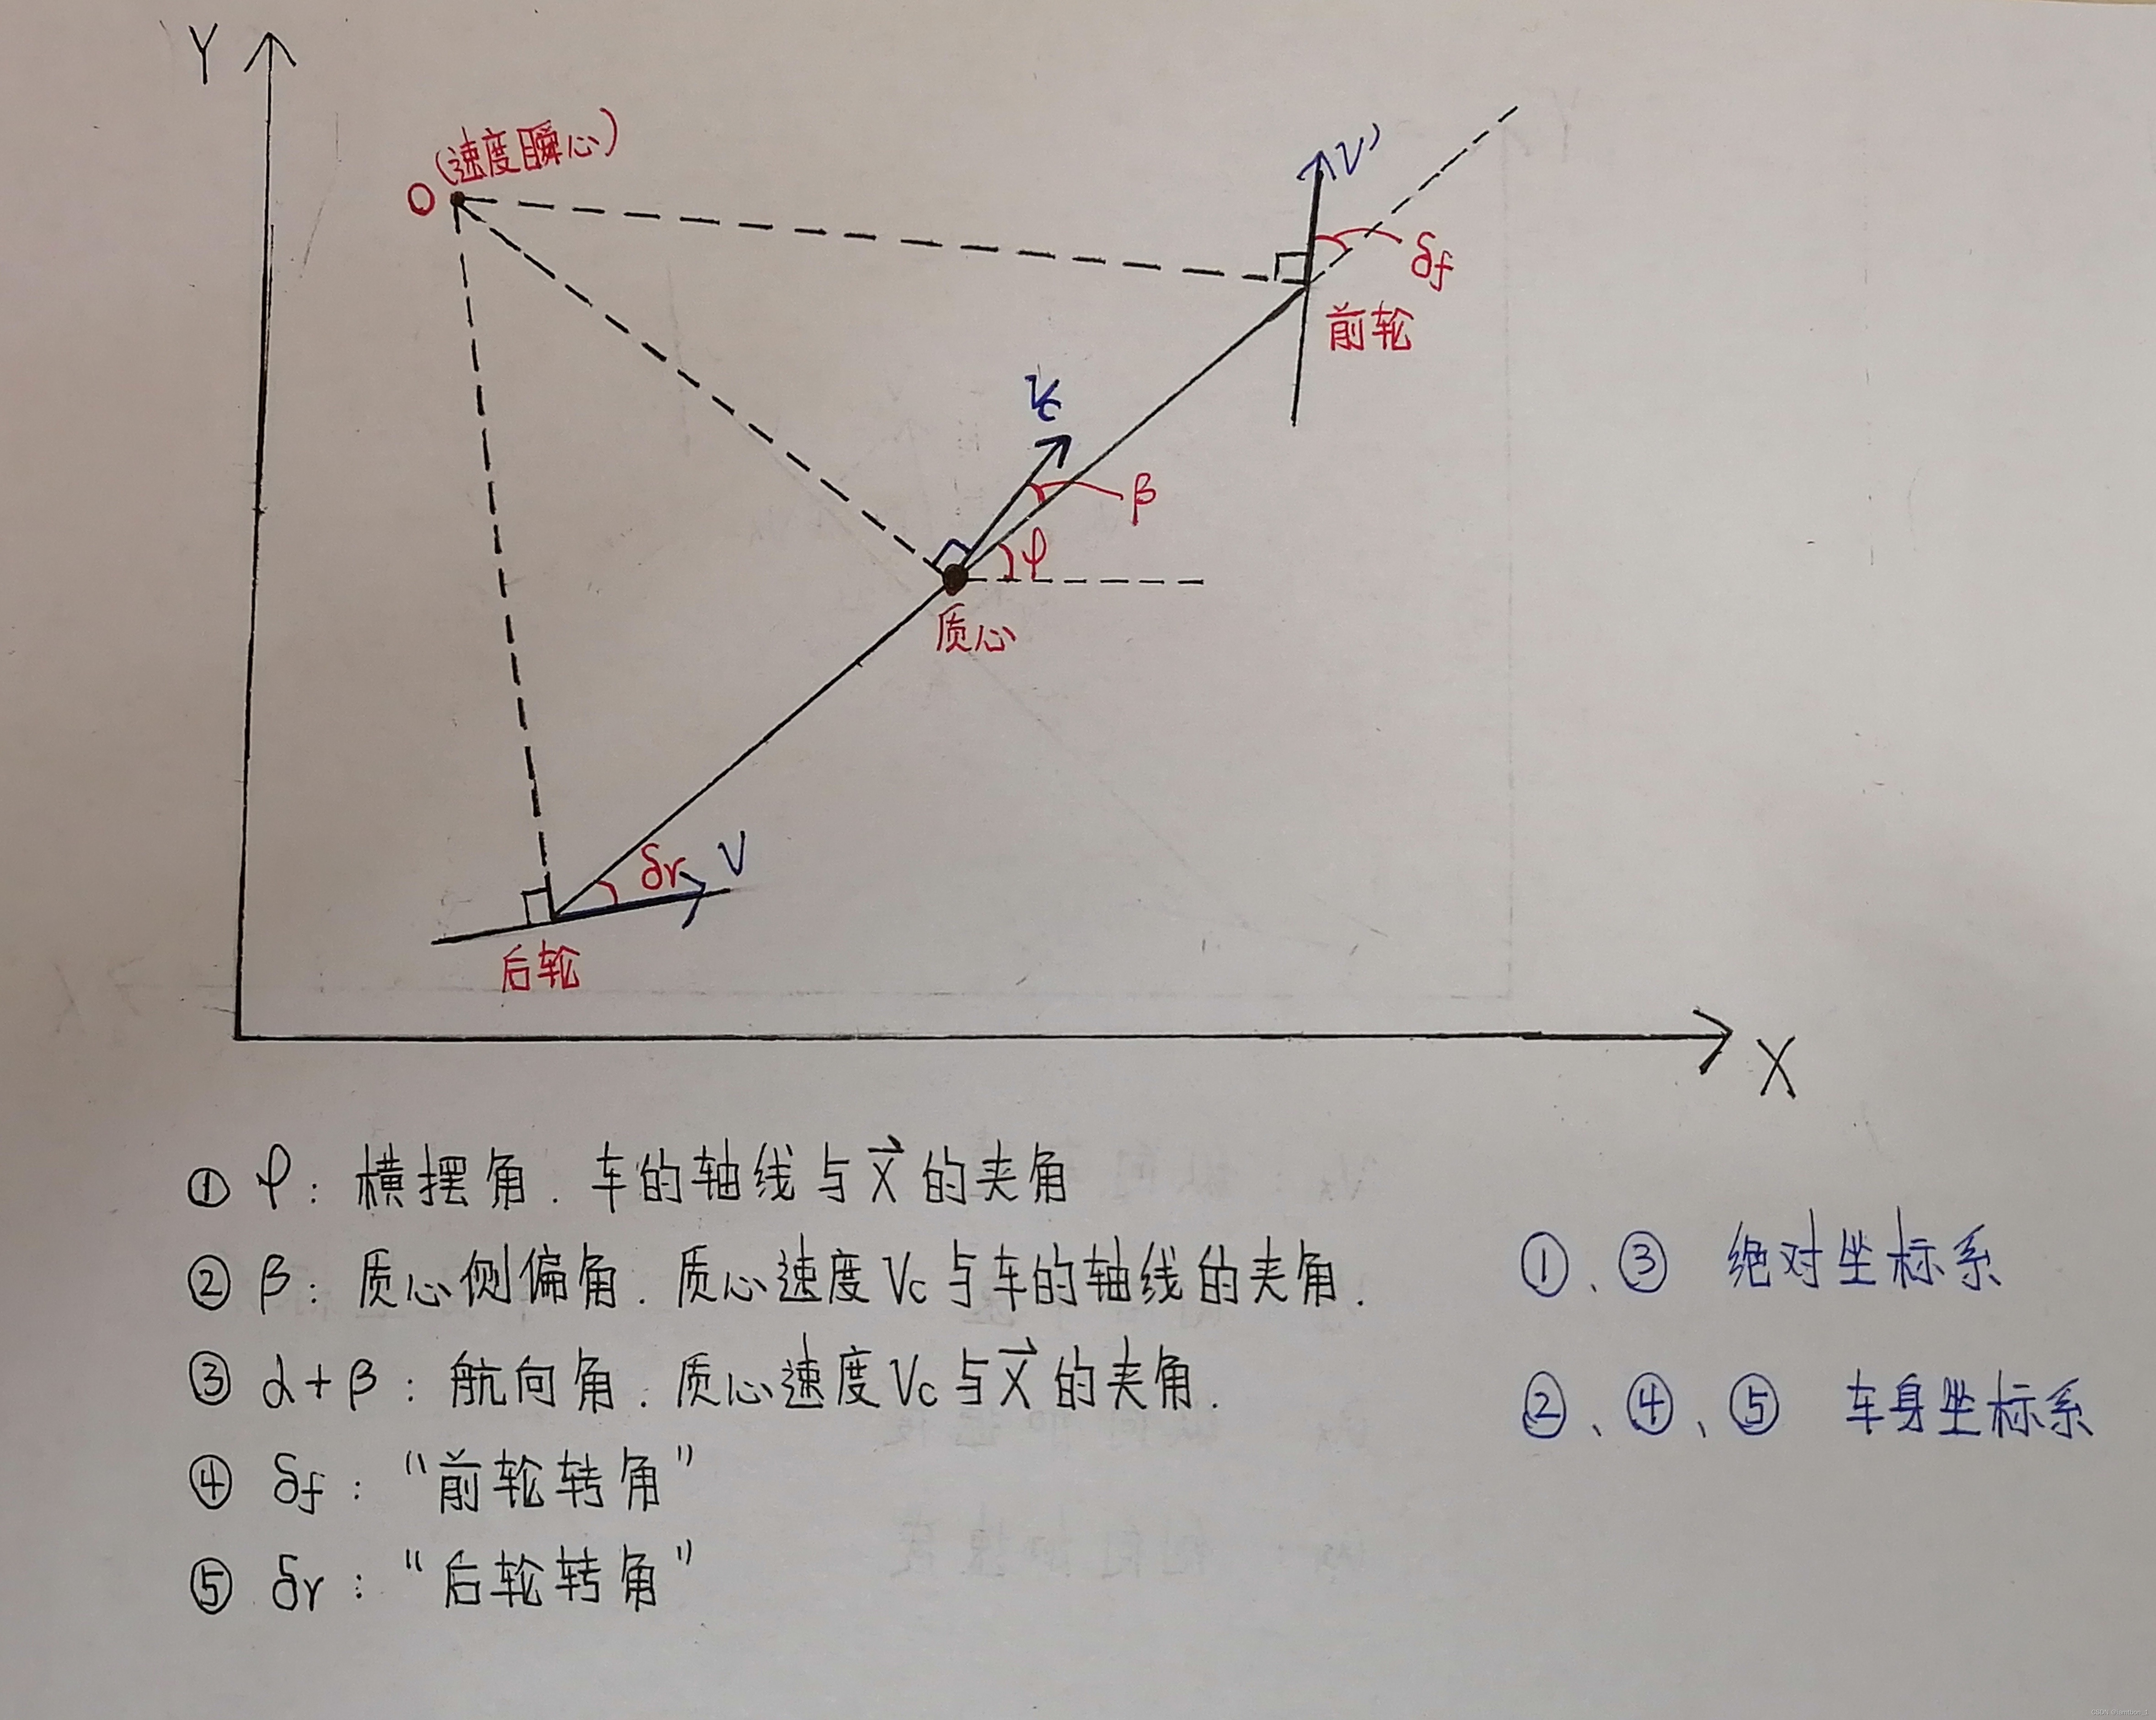 Y
O (速度瞬心)
V'
δf
前轮
Vc
β
φ
质心
δr
V
后轮
X
① φ: 横摆角. 车的轴线与X⃗的夹角
② β: 质心侧偏角. 质心速度Vc与车的轴线的夹角.
③ α+β: 航向角. 质心速度Vc与X⃗的夹角.
④ δf: “前轮转角”
⑤ δr: “后轮转角”
①、③ 绝对坐标系
②、④、⑤ 车身坐标系